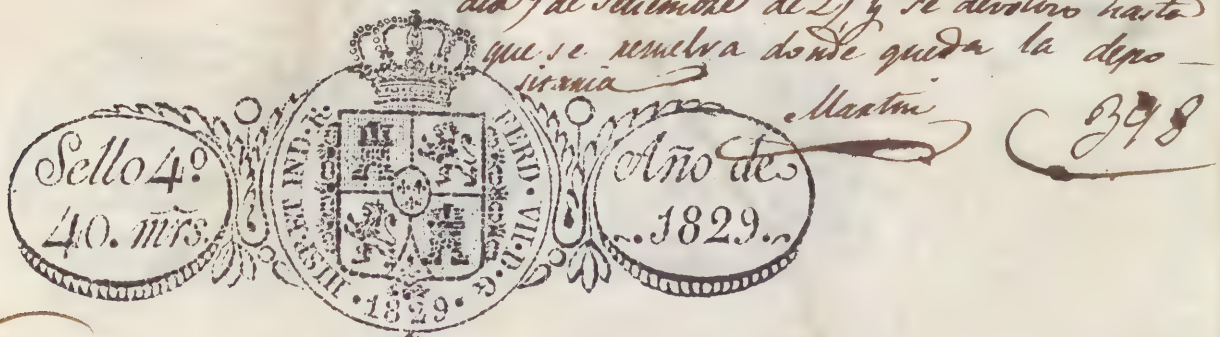 dia 7 de Setiembre de 29 y se devolvio hasta
que se resuelva donde queda la depo-
sitaria
Martin
398
Sello 4º
40. mrs
FERD. VII. D. G.
HISP. ET IND. R.
·1829·
Año de
1829.